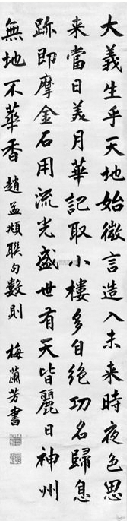 大義生乎天地始微言造入未來時夜色思
來當日美月華記取小樓多自絶功名歸息
跡即摩金石用流光盛世有天皆麗日神州
無地不華香 趙孟頫聯句數則 梅蘭芳書